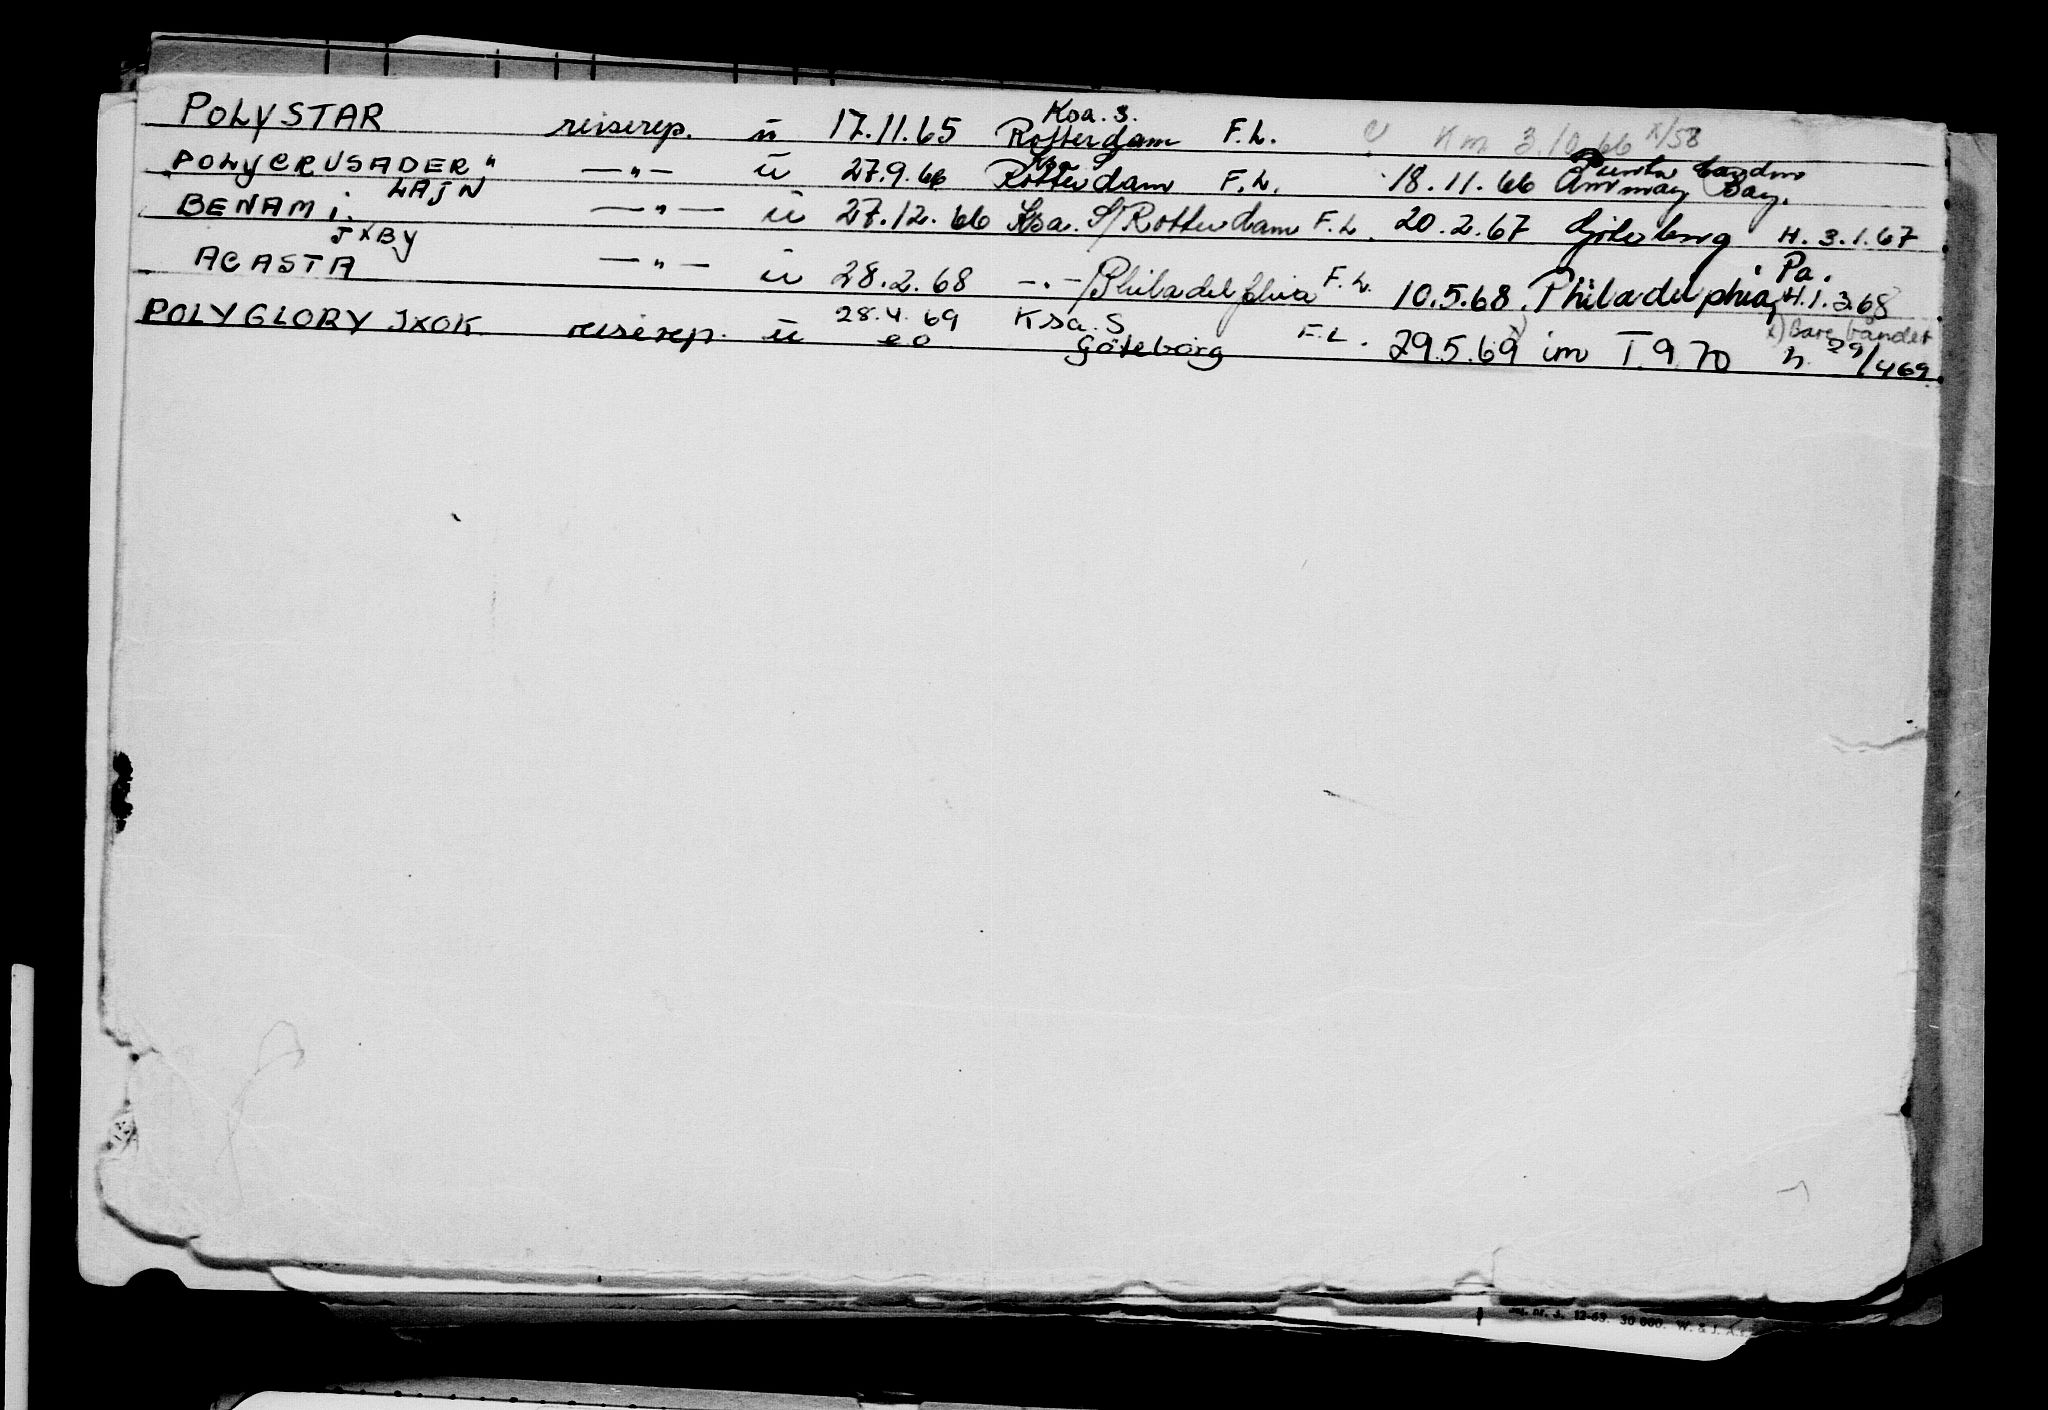 POLYSTAR reiserep. u 17.11.65 Ksa. S. Rotterdam F.L. Km 3.10.66 x/58
"POLYCRUSADER" LAJN —"— u 27.9.66 Ksa S Rotterdam F.L. 18.11.66 Punta Cardon Amuay Bay.
BENAMi. —"— u 27.12.66 Ksa. S/Rotterdam F.L. 20.2.67 Göteborg H. 3.1.67
ACASTA JXBY —"— u 28.2.68 —"—/Philadelphia F.L. 10.5.68. Philadelphia, Pa. H.1.3.68
POLYGLORY JXOK reiserep. u 28.4.69 Ksa. S Göteborg F.L. 29.5.69 x) im T.9.70 x) Bare båndet h. 29/4 69.
12-63. 30 000. W. & J. A.